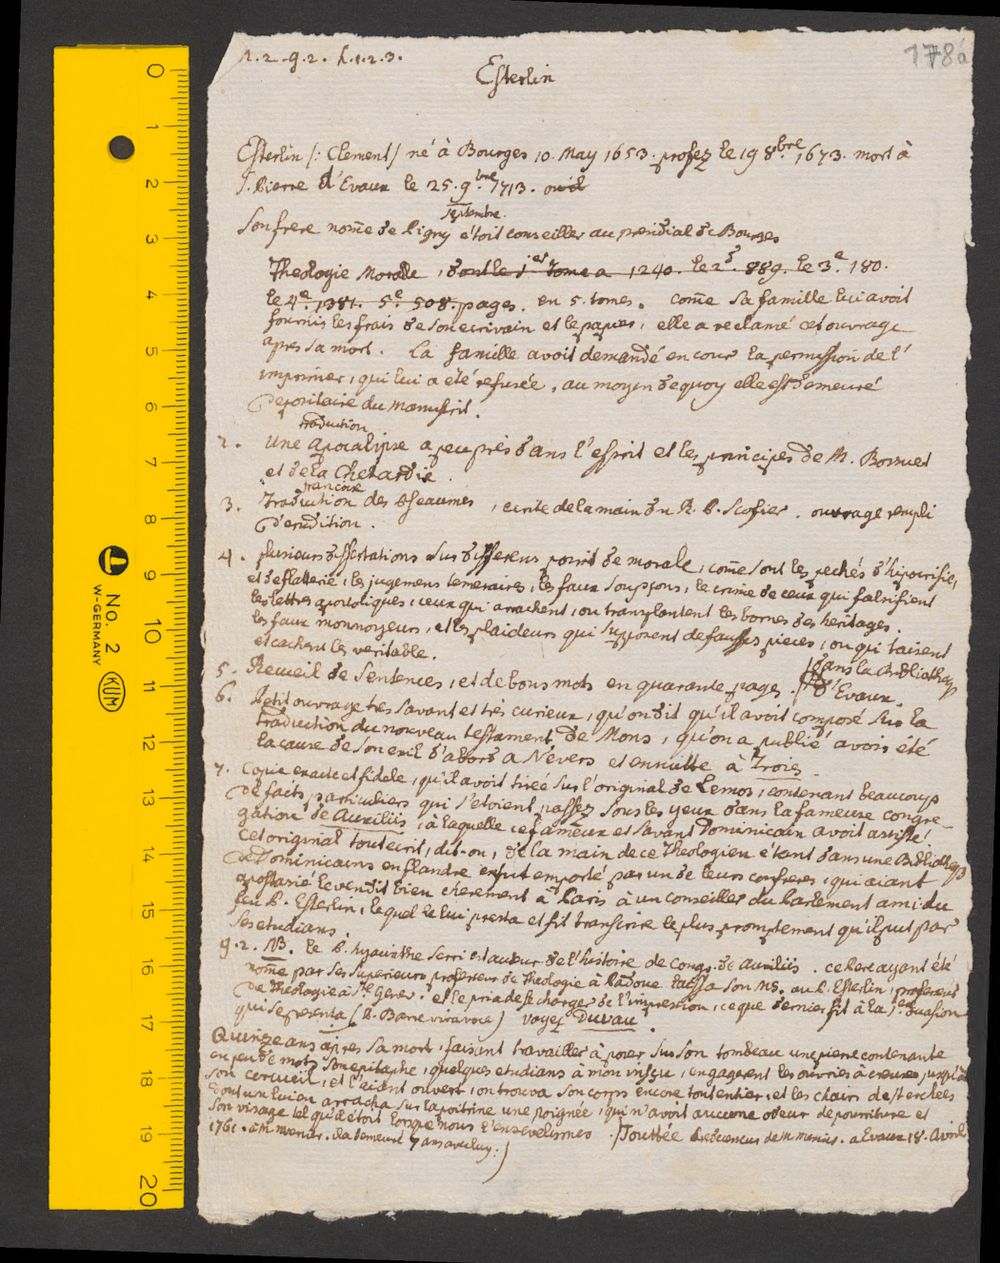 1.2.g.2. h.1.2.3.
1786
Esterlin
Esterlin /: Clement/ né à Bourges 10. May 1653. profez le 19 8.bre 1673. mort à
S. Pierre d'Evaux le 25. 9.bre 1713.
septembre.
Son frere nom̄e de Ligny étoit conseiller au presidial de Bourges
Theologie Moralle, dont le 1er tome a 1240. le 2d. 889. le 3e. 180.
le 4e. 1381. 5e. 508. pages. en 5. tomes. com̄e sa famille lui avoit
fournis les frais de son ecrivain et le papier, elle a reclamé cet ouvrage
apres sa mort. La famille avoit demandé en cour la permission de l'
imprimer, qui lui a été refusée, au moyen de quoy elle est demeuré
depositaire du manuscrit.
traduction
2. une apocalipse a peu près dans l'esprit et les principes de M. Bossuet
et de la Chetardie.
francoise
3. Traduction des Pseaumes, ecrite de la main du R. P. Scofier. ouvrage rempli
d'erudition.
4. plusieurs dissertations sus differens point de morale, com̄e sont les pechés d'hipocrisie,
et de flatterie, les jugemens temeraires, les faux soupçons, le crime de ceux qui falsifient
les lettres apostoliques, ceux qui arrachent, ou transplantent les bornes des heritages,
les faux monnoyeurs, et les plaideurs qui supposent de fausses pieces, ou qui taisent
et cachent les veritable.
5. Recueil de Sentences, et de bons mots en quarante pages. dans la Bibliotheq
d'Evaux.
6. Petit ouvrage tres savant et très curieux, qu'on dit qu'il avoit composé sus la
traduction du nouveau testament de Mons, qu'on a publié avoir été
la cause de son exil d'abord a Nevers et ensuitte à Troies.
7. Copie exacte et fidele, qu'il avoit tirée sus l'original de Lemos, contenant beaucoup
de faits particuliers qui s'etoient passez sous les yeux dans la fameuse congre-
gation de Auxiliis, à laquelle ce fameux et savant Dominicain avoit assisté.
cet original tout ecrit, dit-on, de la main de ce Theologien étant dans une Bibliotheq
de Dominicains en flandre en fut emporté par un de leurs confreres, qui aiant
apostasié le vendit bien cherement à Paris à un conseiller du Parlement ami du
feu P. Esterlin, lequel le lui presta et fit transcrire le plus promptement qu'il put par
ses etudians.
g.2. NB. le P. hyacinthe Serri est auteur de l'histoire de Cong. de auxiliis. ce Pere ayant été
nom̄e par ses superieurs professeur de Theologie à Padoue laissa son MS. au P. Esterlin, professeur
de Theologie à Ste Genev. et le pria de se charger de l'impression, ce que dernier fit à la 1ere occasion
qui se presenta (P. Barre viva voce) voyez Duvau.
Quinze ans apres sa mort, faisant travailler à poser sus son tombeau une pierre contenante
en peu de mots son epitaphe, quelques etudians à mon insçu, engagerent les ouvriers à creuser jusqu'à
son cercueil, et l'aiant ouvert, on trouva son corps encore tout entier, et les chairs dessechees
dont un lui en arracha sur la poitrine une poignée, qui n'avoit aucune odeur de pourriture et
son visage tel qu'il étoit lorsque nous l'ensevelismes. (Touttée Predecesseur de M. menier. a Evaux 18. Avril
1761. a M. menier. il a demeuré 7 ans avec luy.)
0 1 2 3 4 5 6 7 8 9 10 11 12 13 14 15 16 17 18 19 20
No. 2
W-GERMANY
KUM